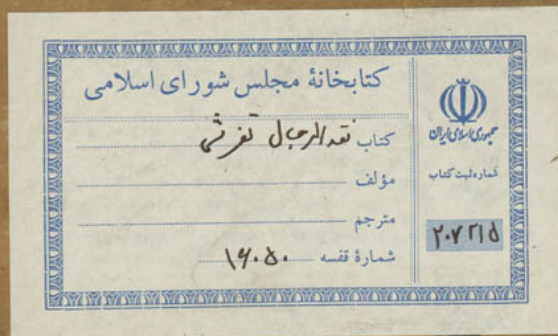 کتابخانهٔ مجلس شورای اسلامی
کتاب نقد الرجال تفرشی
مؤلف
مترجم
شمارهٔ قفسه ۱۶۰۵۰
جمهوری اسلامی ایران
شماره ثبت کتاب
۲۰۷۲۱۵